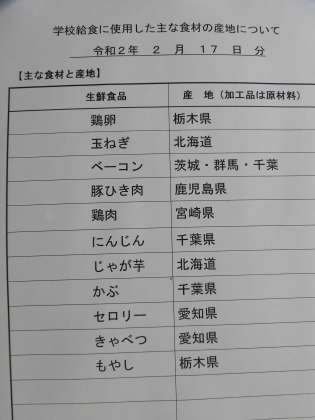 学校給食に使用した主な食材の産地について
令和２年 ２ 月 １７ 日 分
【主な食材と産地】
生鮮食品 産 地（加工品は原材料）
鶏卵 栃木県
玉ねぎ 北海道
ベーコン 茨城・群馬・千葉
豚ひき肉 鹿児島県
鶏肉 宮崎県
にんじん 千葉県
じゃが芋 北海道
かぶ 千葉県
セロリー 愛知県
きゃべつ 愛知県
もやし 栃木県